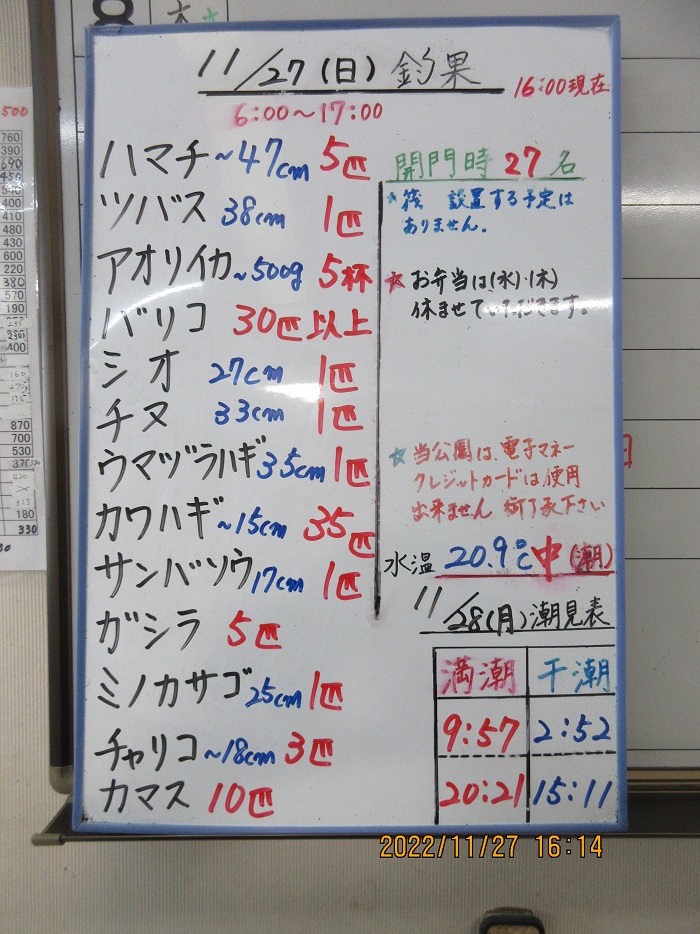 11/27(日) 釣果
16:00現在
6:00～17:00
ハマチ ～47cm 5匹
ツバス 38cm 1匹
アオリイカ ～500g 5杯
バリコ 30匹以上
シオ 27cm 1匹
チヌ 33cm 1匹
ウマヅラハギ 35cm 1匹
カワハギ ～15cm 35匹
サンバソウ 17cm 1匹
ガシラ 5匹
ミノカサゴ 25cm 1匹
チャリコ ～18cm 3匹
カマス 10匹
開門時 27名
＊筏 設置する予定は
ありません。
☆お弁当は(水)・(木)
休ませていただきます。
☆当公園は、電子マネー
クレジットカードは使用
出来ません 御了承下さい
水温 20.9℃ 中(潮)
11/28(月)潮見表
満潮 干潮
9:57 2:52
20:21 15:11
2022/11/27 16:14
500
760
390
690
450
540
400
410
480
430
600
220
380
570
190
400
870
700
530
180
330